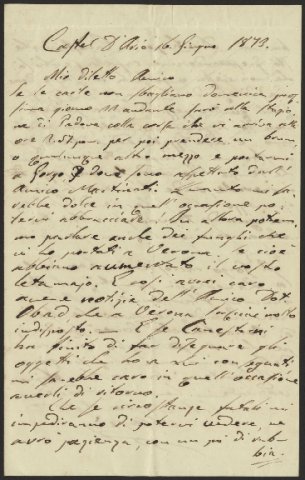 Castel D'Ario 16 Giugno 1873.
Mio diletto Amico
Se le carte non sbagliano domenica pros
simo giorno 22 andante sarò alla Stazio
ne di Padova colla corsa che vi arriva alle
ore 2.57 pom. per poi prendere un
o qualunque altro mezzo e portarmi
a dove sono aspettato dall'
Amico Martinati. Quanto mi sa
rebbe dolce in quell'occasione po
tervi abbracciare! In allora potrem
mo parlare anche dei funghi che
vi ho portati a Verona, se cioè
abbiano aumentato il vostro
letamajo. E così avrei caro
avere notizia dell'Amico Dot.
che a Verona molto
indisposto. — E se Canestrini
ha finito di far disegnare gli
oggetti che ho a lui consegnati
mi sarebbe caro in quell'occasione
averli di ritorno.
Che se circostanze fatali mi
impediranno di potervi vedere, ne
avrò pazienza, con un pò di rab
bia.